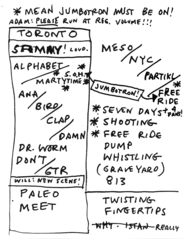 * MEAN JUMBOTRON MUST BE ON!
ADAM: PLEASE RUN AT REG. VOLUME!!!
TORONTO
SAMMY! LOUD.
ALPHABET
* S.O.H.
MARTYTIME *
ANA
BIRD
CLAP
DAMN
DR. WORM
DON'T
GTR
WILL: NEW SCENE!
PALEO
MEET
MESO/
NYC
PARTIKL
JUMBOTRON!
* FREE RIDE
* SEVEN DAYS
* SHOOTING
* FREE RIDE
DUMP
WHISTLING
(GRAVEYARD)
813
TWISTING
FINGERTIPS
REALLY